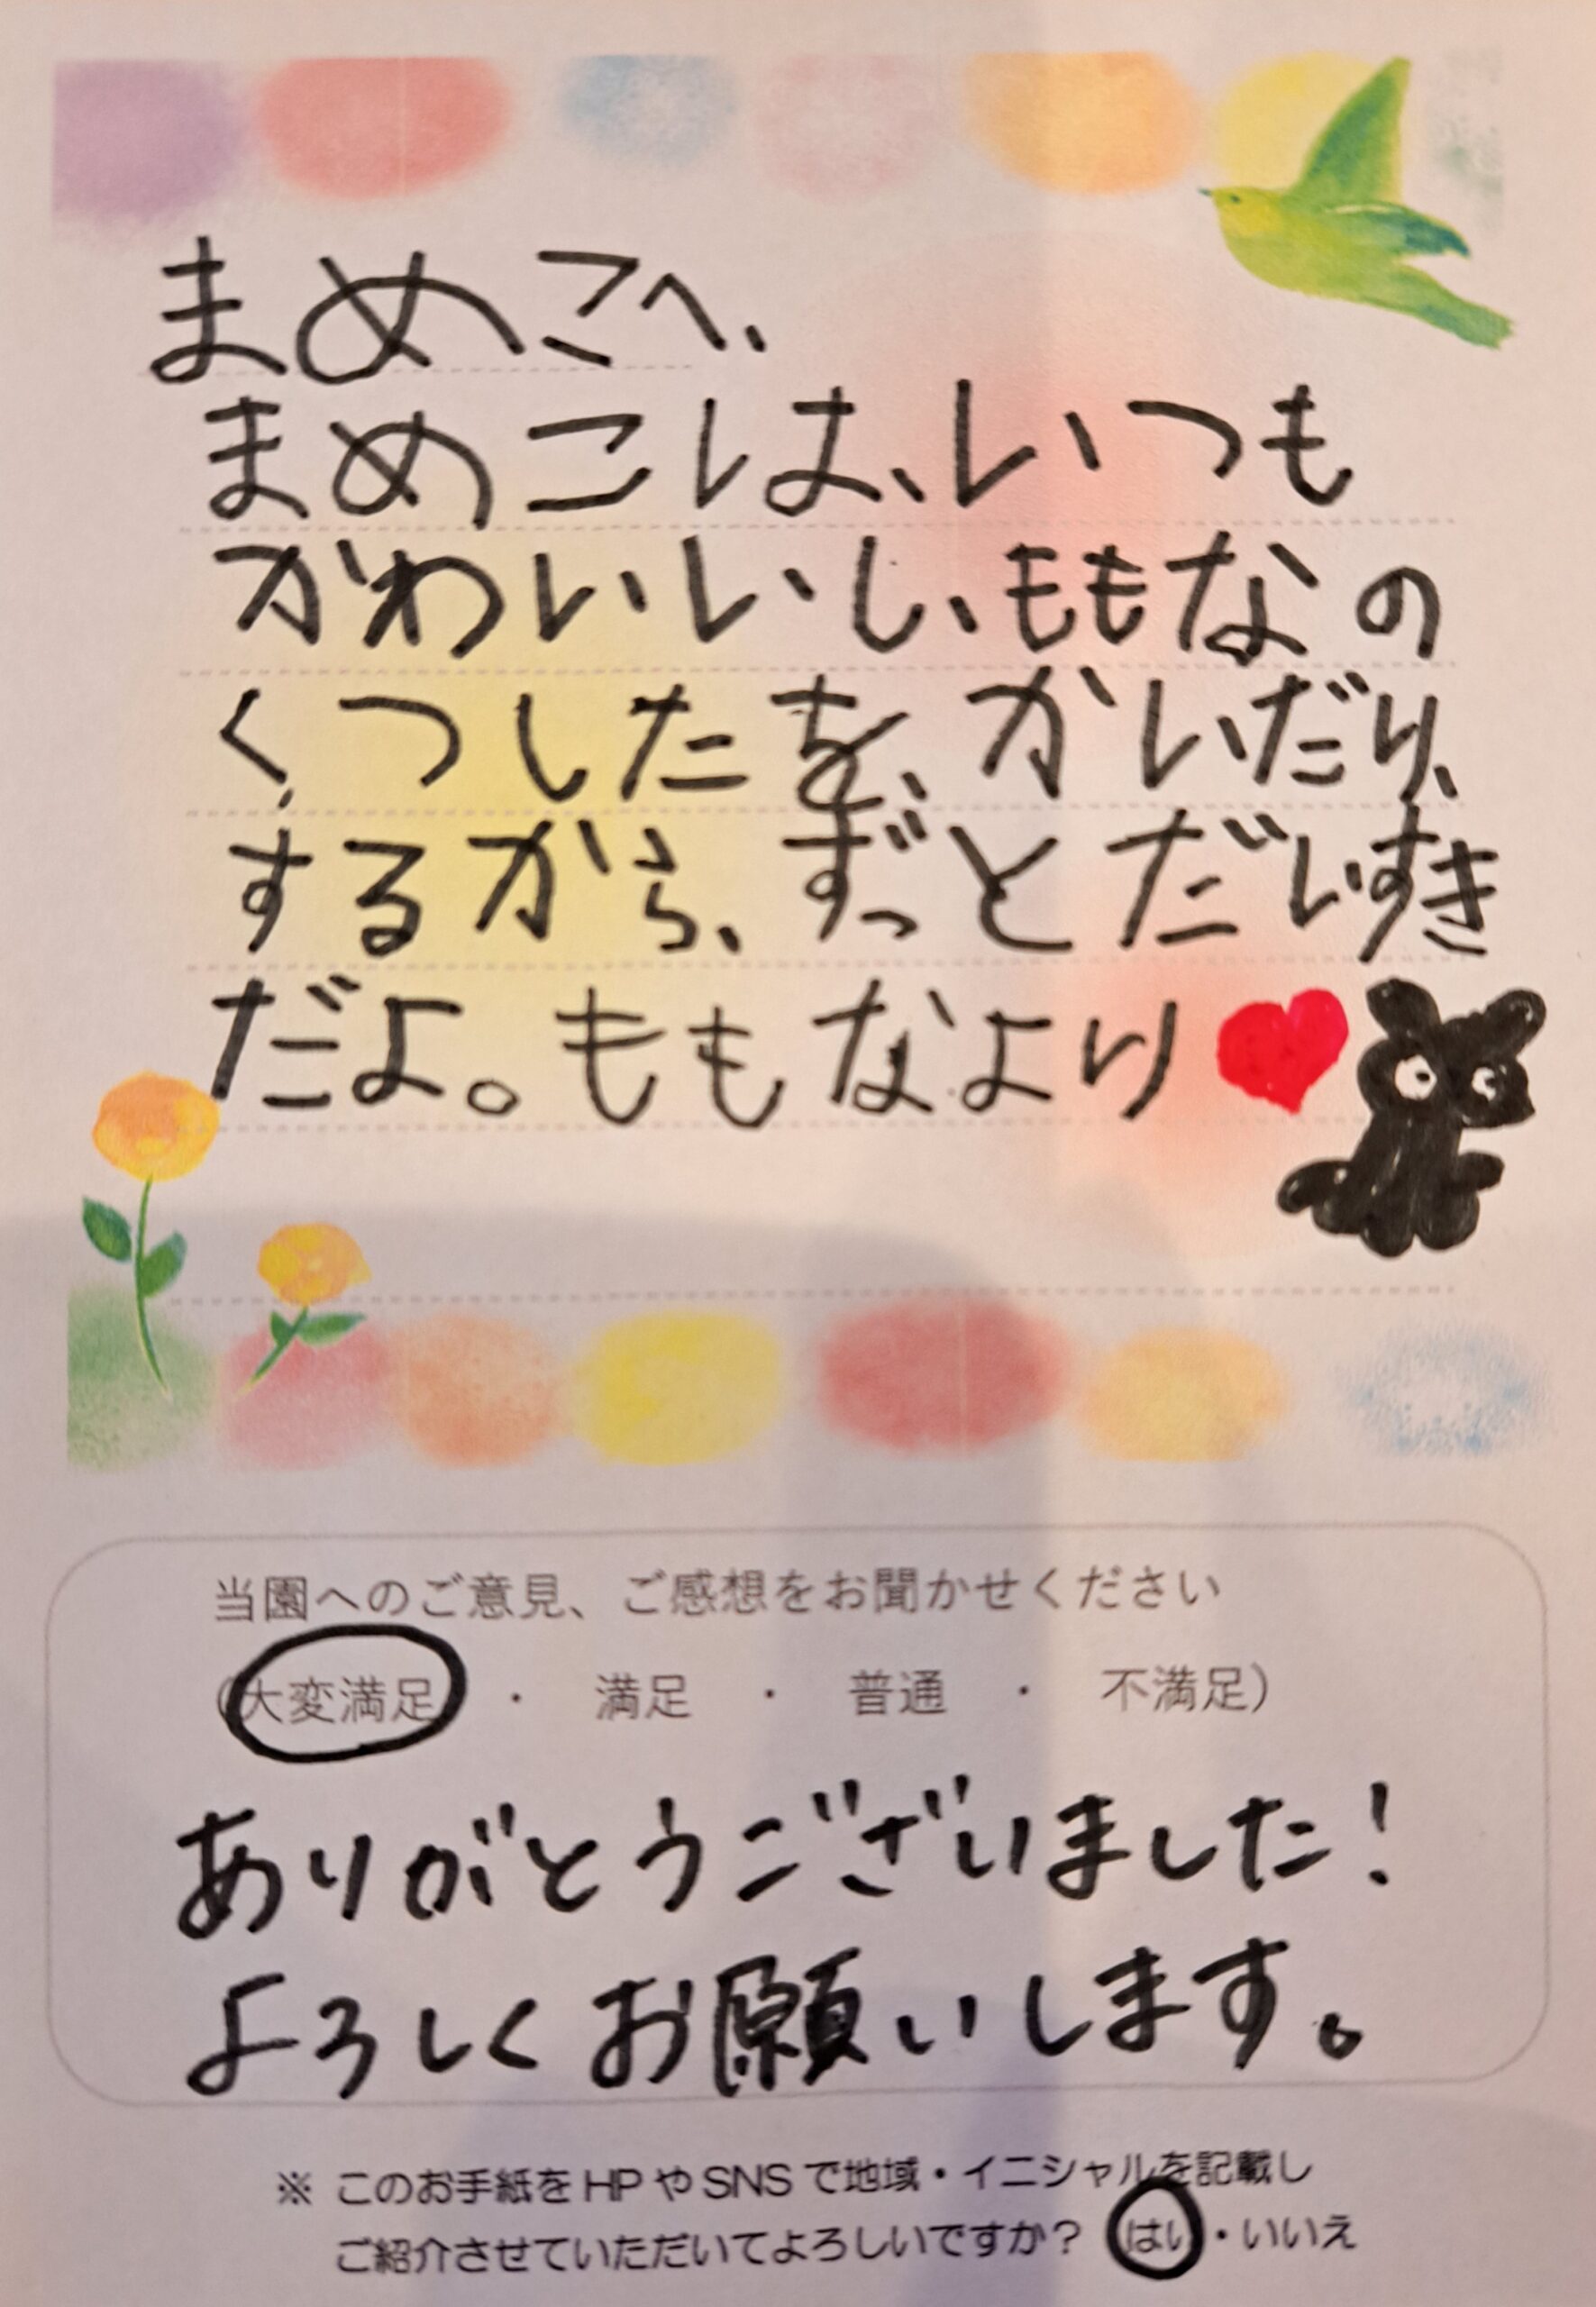 まめこへ、
まめこは、いつも
かわいいし、ももなの
くつしたを、かいだり、
するから、ずっとだいすき
だよ。ももなより
当園へのご意見、ご感想をお聞かせください
(大変満足 ・ 満足 ・ 普通 ・ 不満足)
ありがとうございました!
よろしくお願いします。
※ このお手紙をHPやSNSで地域・イニシャルを記載し
ご紹介させていただいてよろしいですか? (はい・いいえ